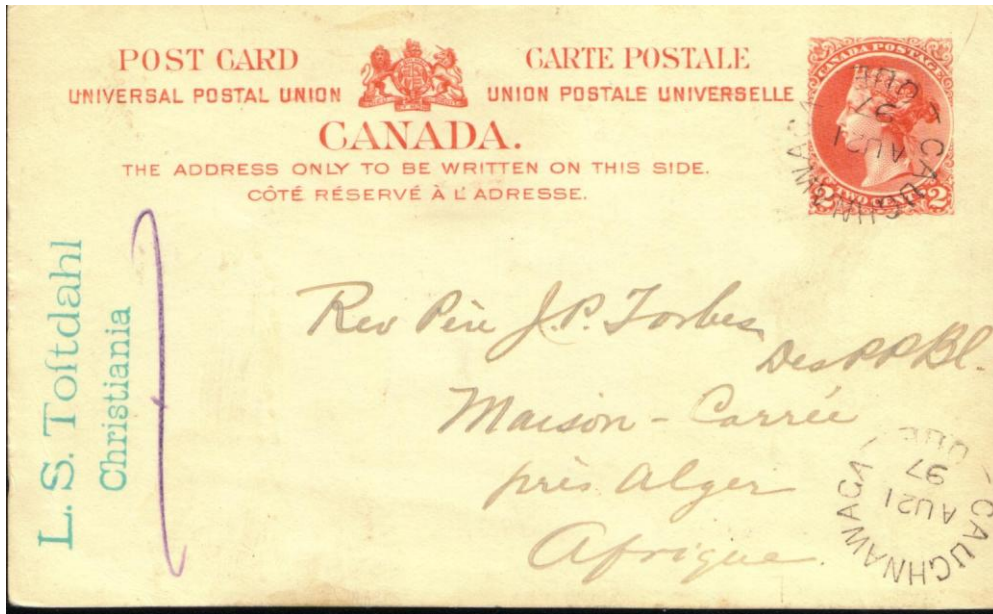 POST CARD
CARTE POSTALE
UNIVERSAL POSTAL UNION
UNION POSTALE UNIVERSELLE
CANADA.
THE ADDRESS ONLY TO BE WRITTEN ON THIS SIDE.
CÔTÉ RÉSERVÉ À L'ADRESSE.
CANADA POSTAGE
2 TWO CENTS 2
CAUGHNAWAGA
QUE
AU 21
97
L. S. Toſtdahl
Christiania
Rev Père J.P. Forbes
Des P P Bl.
Maison - Carrée
près Alger
Afrique.
CAUGHNAWAGA
QUE
AU 21
97